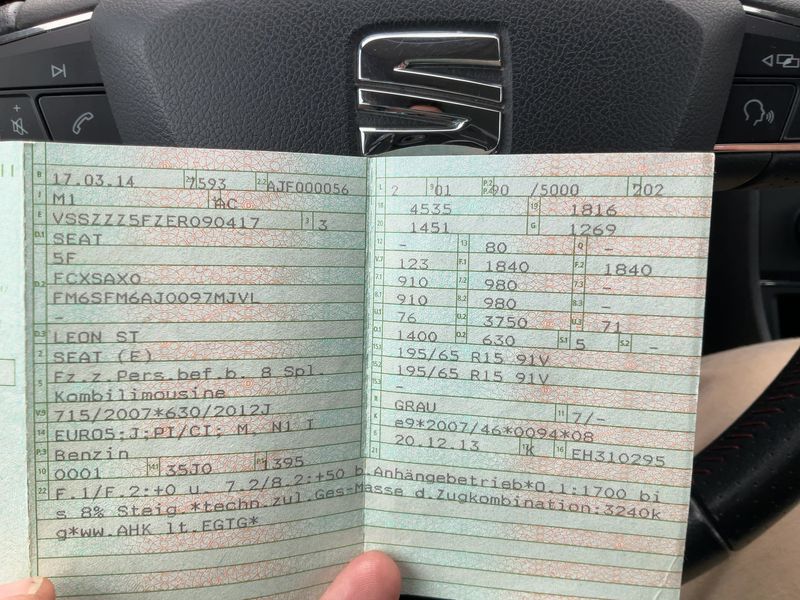 B 17.03.14 2.1 7593 2.2 AJF000056
J M1 4 AC
E VSSZZZ5FZER090417 3 3
D.1 SEAT
5F
D.2 FCXSAX0
FM6SFM6AJ0097MJVL
-
D.3 LEON ST
2 SEAT (E)
5 Fz.z.Pers.bef.b. 8 Spl.
Kombilimousine
V.9 715/2007*630/2012J
14 EURO5;J;PI/CI; M, N1 I
P.3 Benzin
10 0001 14.1 35J0 P.1 1395
L 2 9 01 P.2 P.4 90 /5000 T 202
18 4535 19 1816
20 1451 G 1269
12 - 13 80 Q -
V.7 123 F.1 1840 F.2 1840
7.1 910 7.2 980 7.3 -
8.1 910 8.2 980 8.3 -
U.1 76 U.2 3750 U.3 71
O.1 1400 O.2 630 S.1 5 S.2 -
15.1 195/65 R15 91V
15.2 195/65 R15 91V
15.3 -
R GRAU 11 7/-
K e9*2007/46*0094*08
6 20.12.13 17 K 16 EH310295
21
22 F.1/F.2:+0 u. 7.2/8.2:+50 b.Anhängebetrieb*O.1:1700 bi
s 8% Steig.*techn.zul.Ges-Masse d.Zugkombination:3240k
g*ww.AHK lt.EGTG*